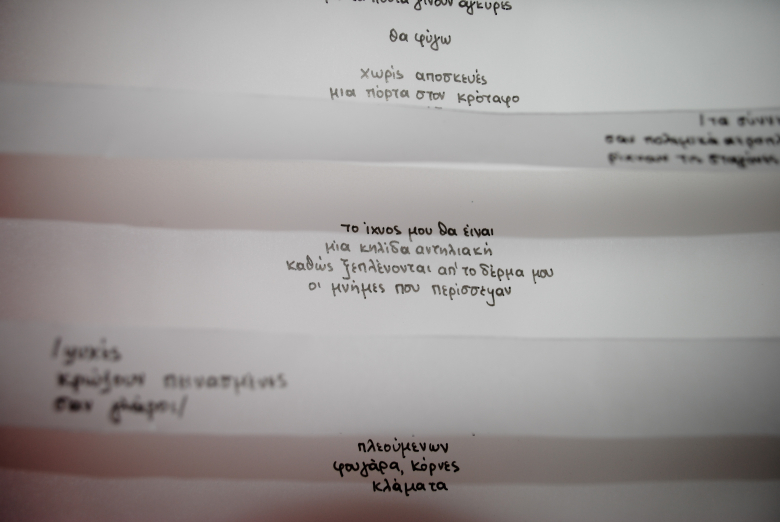 γίνουν άγκυρες
θα φύγω
χωρίς αποσκευές
μια πόρτα στον κρόταφο
/τα σύνν
σαν πολεμικά
ρίχνουν τις σταγόνες
το ίχνος μου θα είναι
μια κηλίδα αντηλιακή
καθώς ξεπλένονται απ' το δέρμα μου
οι μνήμες που περίσσεψαν
/ψυχές
κρώζουν πεινασμένες
σαν γλάροι/
πλεούμενων
φουγάρα, κόρνες
κλάματα